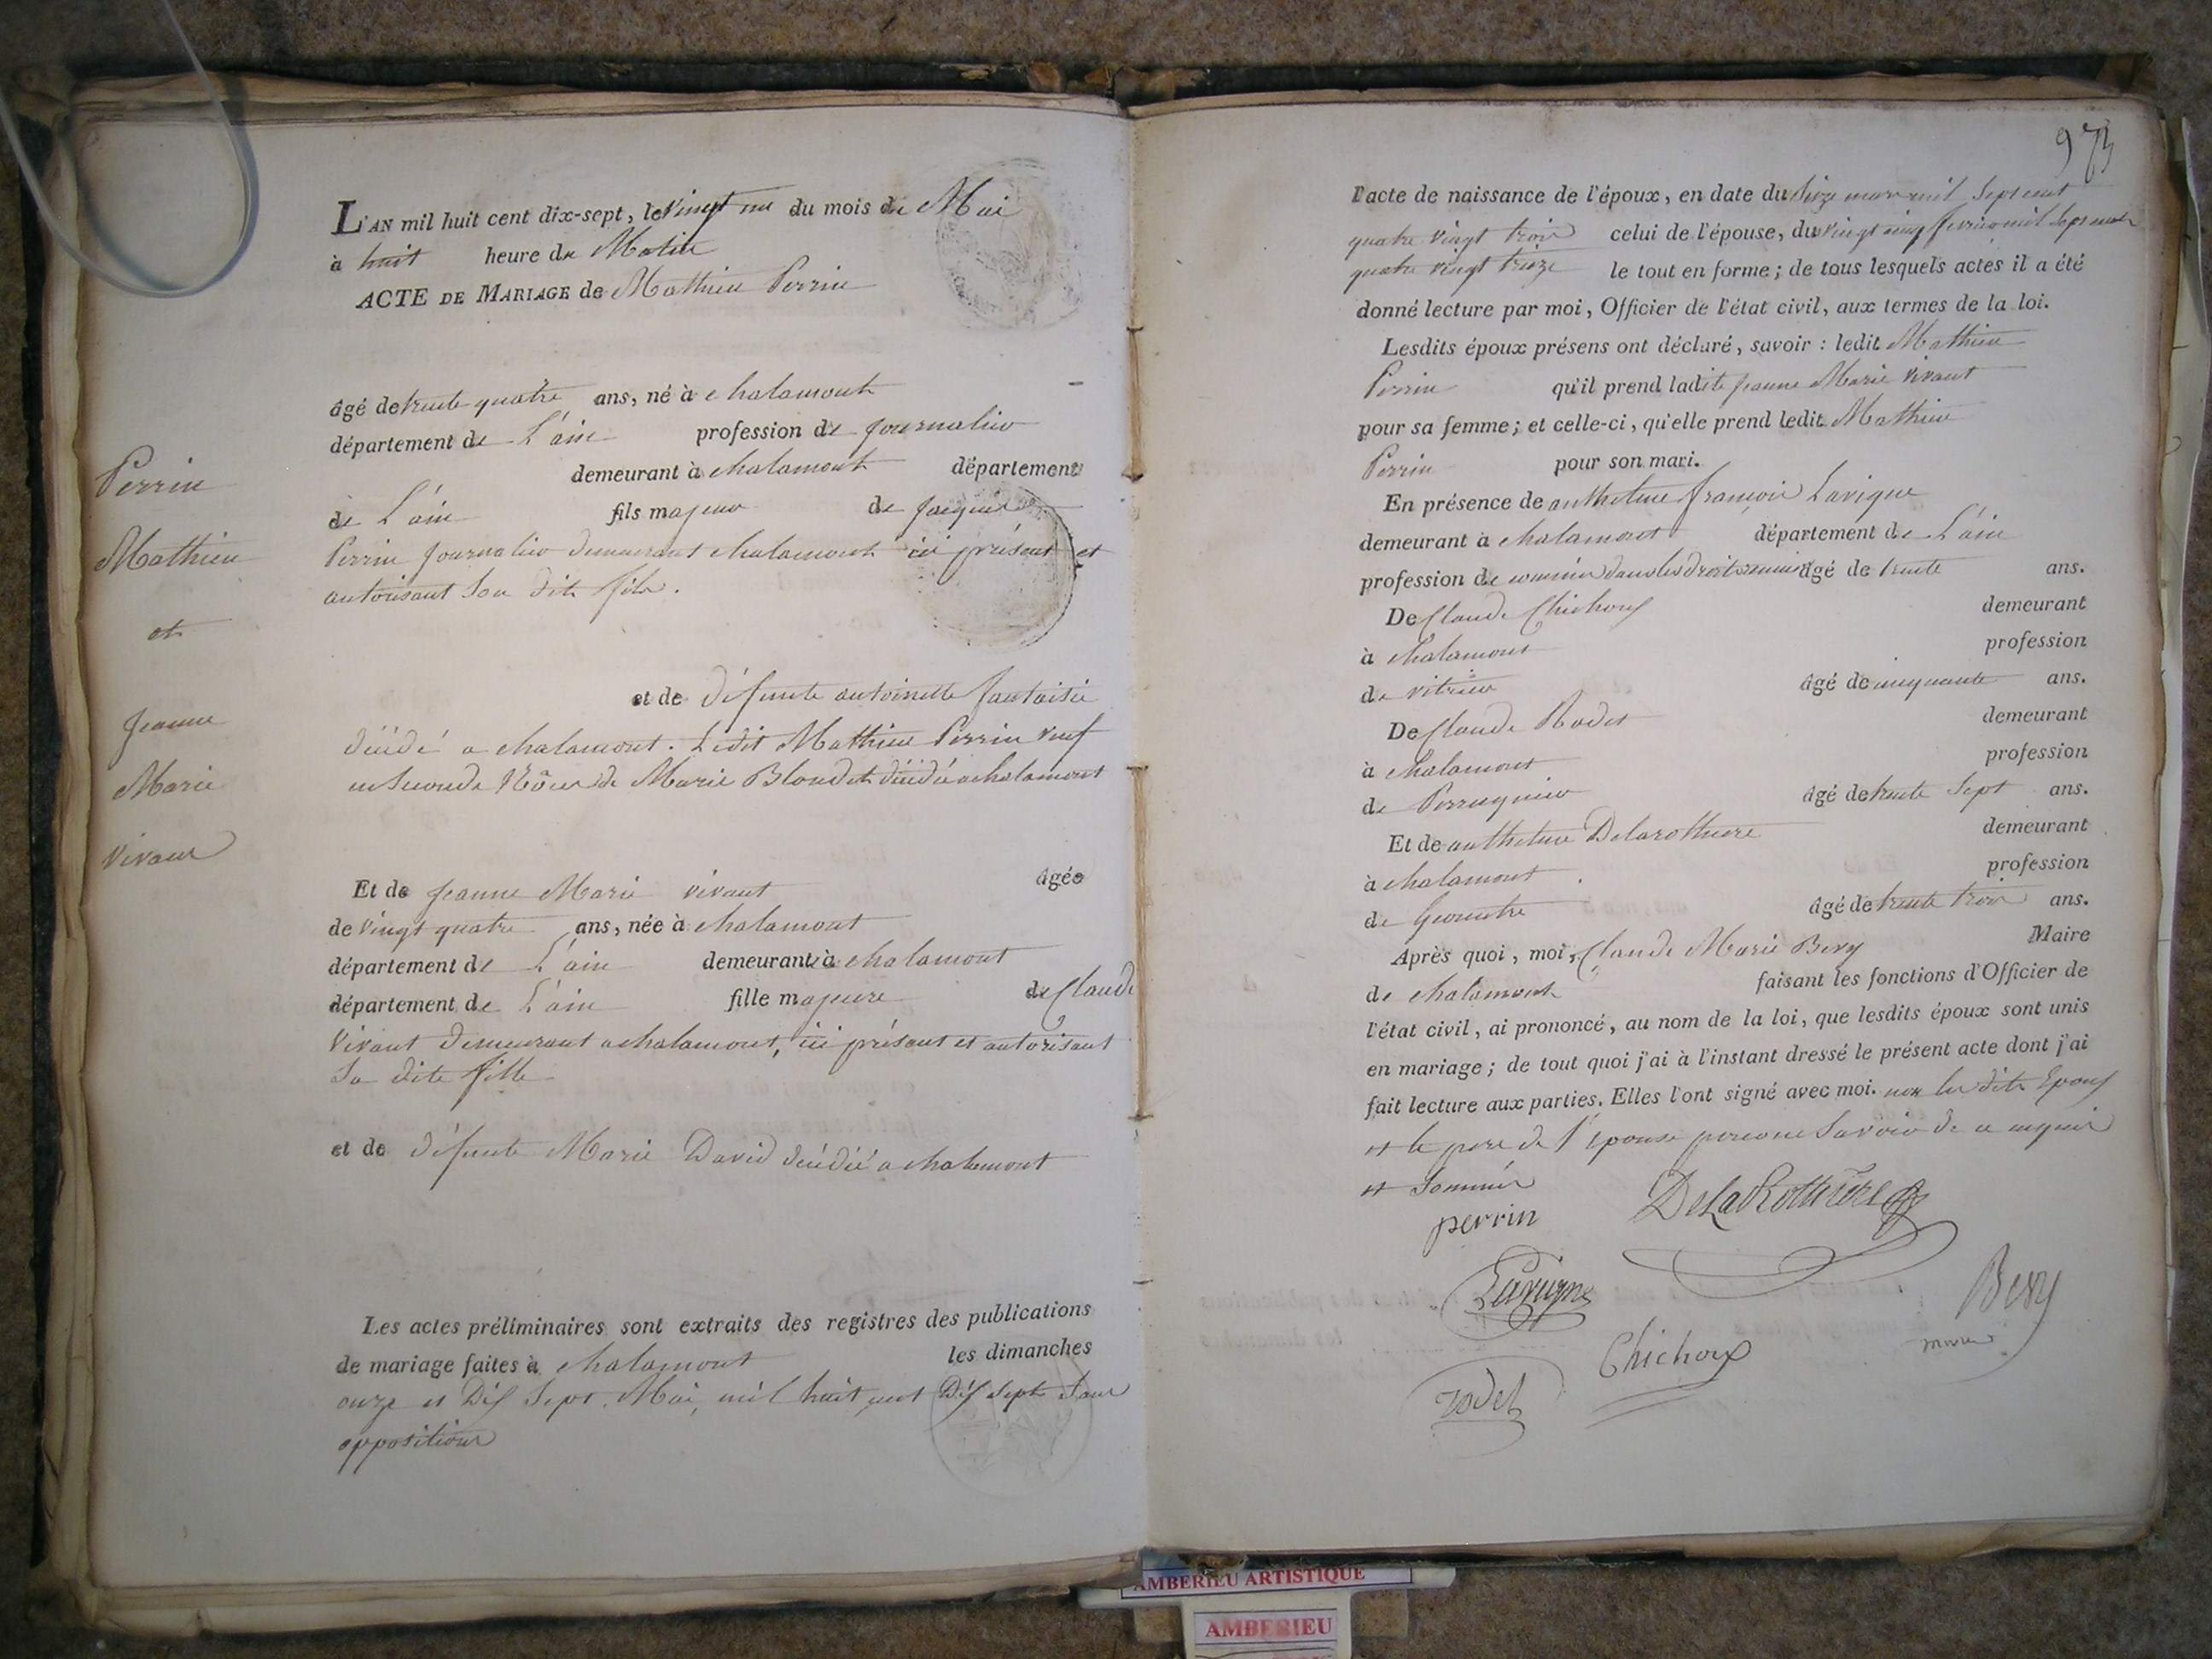 Perrin
Mathieu
et
Jeanne
Marie
Vivant
L'AN mil huit cent dix-sept, le Vingt un du mois de Mai
à huit heure du Matin
ACTE DE MARIAGE de Mathieu Perrin
âgé de trente quatre ans, né à chalamont
département de L'ain profession de journalier
demeurant à chalamont département
de L'ain fils majeur de jacques
Perrin journalier demeurant chalamont ici présent et
autorisant son dit fils.
et de défunte antoinette
décédé a chalamont. Ledit Mathieu Perrin veuf
en seconde Nôces de Marie Blondet décédée a chalamont
Et de jeanne Marie vivant âgée
de vingt quatre ans, née à chalamont
département de L'ain demeurante à chalamont
département de L'ain fille majeure de Claude
vivant demeurant a chalamont, ici présent et autorisant
sa dite fille
et de défunte Marie David décédée a chalamont
Les actes préliminaires sont extraits des registres des publications
de mariage faites à chalamont les dimanches
onze et Dix Sept Mai, mil huit cent Dix Sept sans
oppositions
973
l'acte de naissance de l'époux, en date du mars mil sept cent
quatre vingt trois celui de l'épouse, du vingt cinq fevrier mil sept cent
quatre vingt treize le tout en forme; de tous lesquels actes il a été
donné lecture par moi, Officier de l'état civil, aux termes de la loi.
Lesdits époux présens ont déclaré, savoir : ledit Mathieu
Perrin qu'il prend ladite jeanne Marie vivant
pour sa femme; et celle-ci, qu'elle prend ledit Mathieu
Perrin pour son mari.
En présence de anthelme françois Lavigne
demeurant à chalamont département de L'ain
profession de commis dans les droits réunis âgé de trente ans.
De Claude Chichoux demeurant
à chalamont profession
de vitrier âgé de cinquante ans.
De Claude Rodet demeurant
à chalamont profession
de Perruquier âgé de trente sept ans.
Et de anthelme Delarothiere demeurant
à chalamont profession
de Geometre âgé de trente trois ans.
Après quoi, moi, Claude Marie Bevy Maire
de chalamont faisant les fonctions d'Officier de
l'état civil, ai prononcé, au nom de la loi, que lesdits époux sont unis
en mariage; de tout quoi j'ai à l'instant dressé le présent acte dont j'ai
fait lecture aux parties. Elles l'ont signé avec moi. non les dits Epoux
et le pere de l'épouse pour ne savoir de ce enquis
et sommés
perrin DeLaRothiere
Lavigne Bevy
Chichoux maire
rodet
AMBERIEU ARTISTIQUE
AMBERIEU